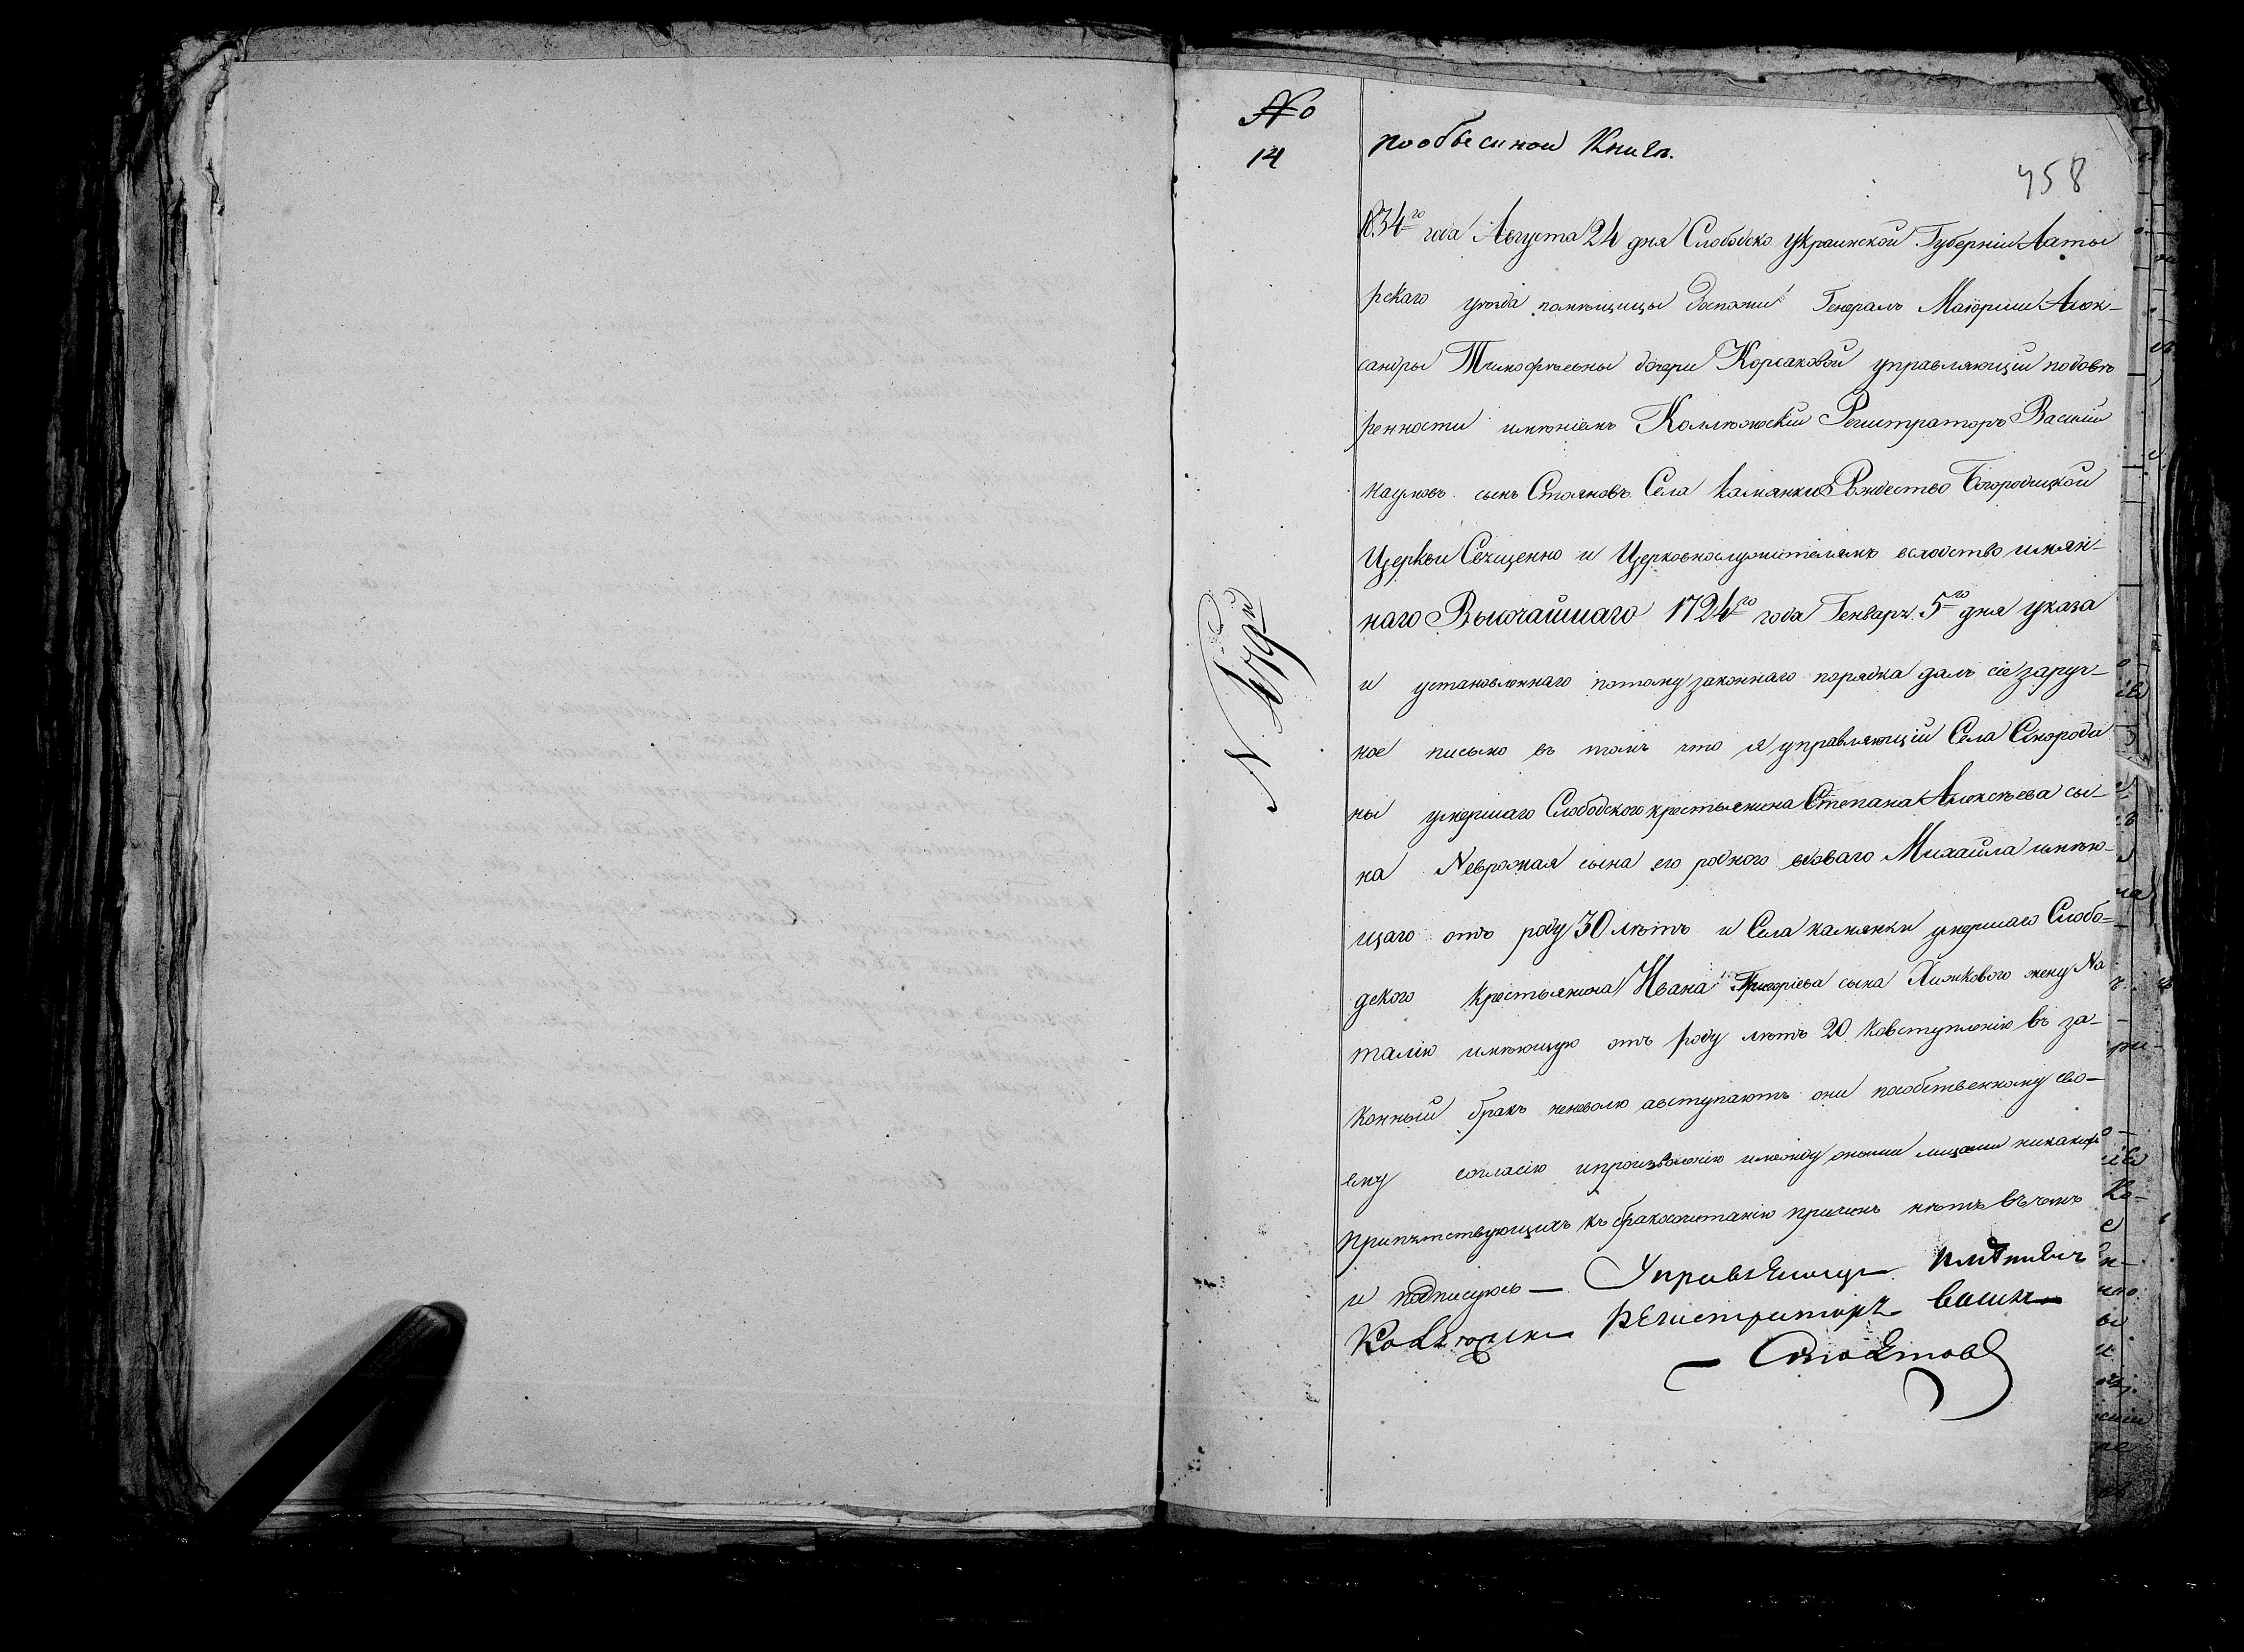 №
14
пообыскной Книгѣ.
458
1834го года Августа 24 дня Слободско Украинской Губерніи Ахты
рскаго уѣзда помѣщицы Госпожи Генералъ Маіорши Алек-
сандры Тимофѣевны дочери Корсаковой управляющій подовѣ
ренности имѣніемъ Коллежскій Регистраторъ Василій
Наумовъ сынъ Стояновъ Села Камянки Рождество Богородицкой
Церкви Священно и Церковнослужителямъ вслѣдство имян-
наго Высочайшаго 1724го года Генваря 5го дня указа
и установленнаго потому законнаго порядка далъ сіе заруч-
ное письмо въ томъ что я управляющій Села Сморода
ны умершаго Слободского крестьянина Степана Алексѣева сы-
на Неврожая сына его родного вдоваго Михайла имѣю-
щаго отъ роду 30 лѣтъ и Села камянки умершаго Слобо-
дского крестьянина Ивана Григоріева сына Хижкового жену На
талію имѣющую отъ роду лѣтъ 20 ковступленію въ за-
конный бракъ неневолю авступаютъ они пособственному сво-
ему согласію ипроизволенію имежду оными лицами никакихъ
Припятствующихъ къ бракосочитанію причинъ нѣтъ въ чемъ
и подписуюсь — Управляющи имѣниемъ
Коллежски Регистраторъ Васили
Стояновъ
N. 479й